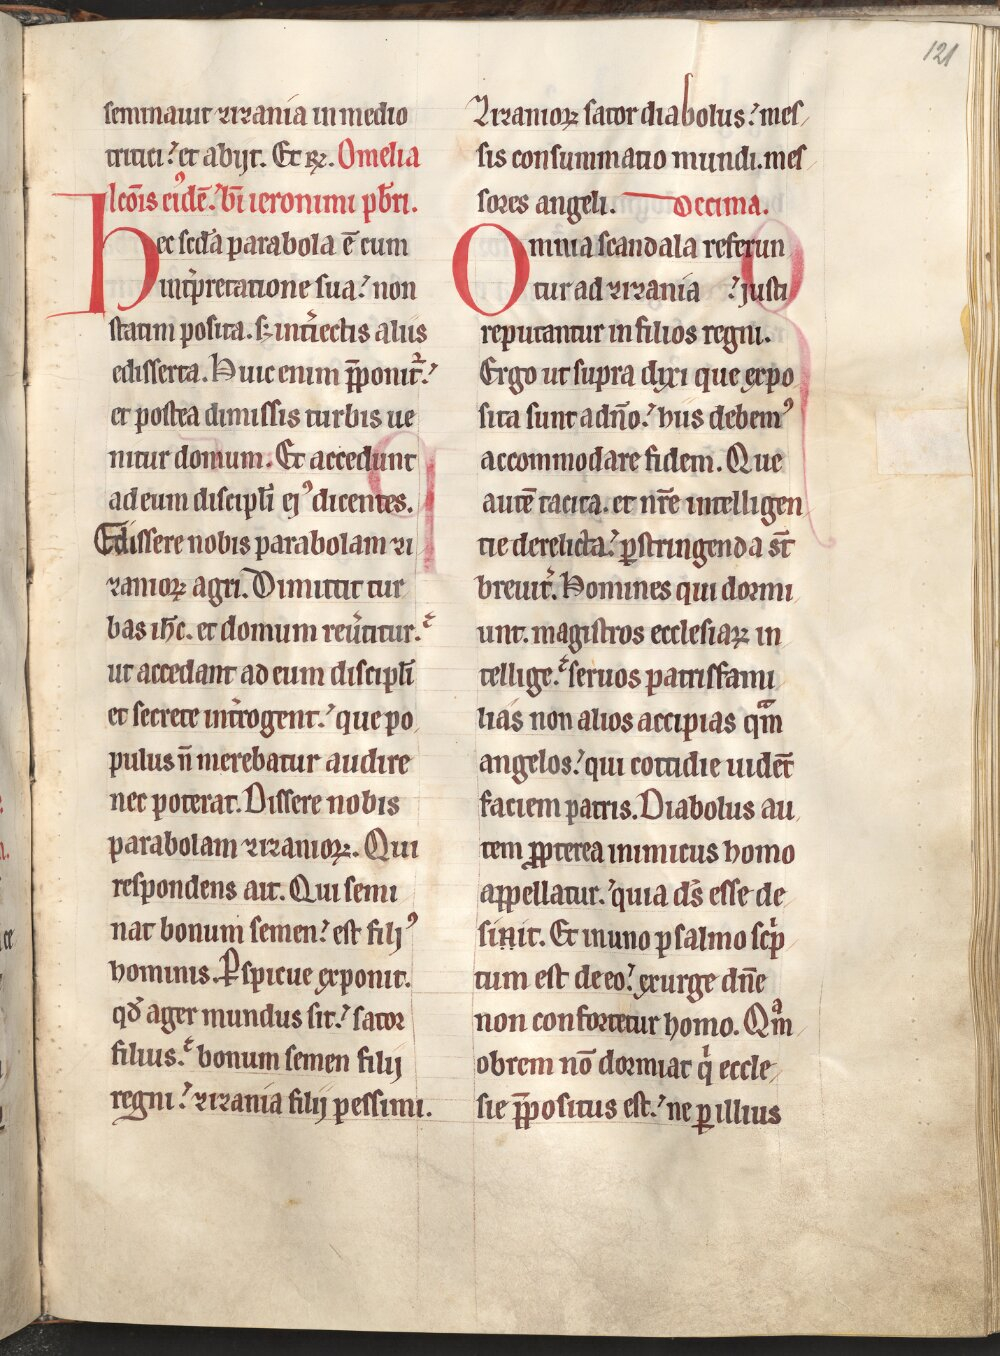 121
seminauit zizania in medio
tritici. et abijt. Et rł. Omelia
lcōis eiꝰdē. bī ieronimi pb̄ri.
Hec scd̄a parabola ē cum
int̄pretatione sua. non
statim posita. sꝫ int̄iectis aliis
edisserta. Huic enim p̄ponit̄.
et postea dimissis turbis ue
nitur domum. Et accedunt
ad eum discipl̄i ejꝰ dicentes.
Edissere nobis parabolam zi
zanioꝝ agri. Dimittit tur
bas ih̄c. et domum reūtitur.
ut accedant ad eum discipl̄i
et secrete int̄rogent. que po
pulus n̄ merebatur audire
nec poterat. Dissere nobis
parabolam zizanioꝝ. Qui
respondens ait. Qui semi
nat bonum semen. est filjꝰ
hominis. Ꝑspicue exponit.
qd̄ ager mundus sit. sator
filius. bonum semen filij
regni. zizania filij pessimi.
Zizanioꝝ sator diabolus. mes
sis consummatio mundi. mes
sores angeli. Decima.
Omnia scandala referun
tur ad zizania. justi
reputantur in filios regni.
Ergo ut supra dixi que expo
sita sunt a dn̄o. hiis debemꝰ
accommodare fidem. Que
autē tacita. et nr̄e intelligen
tie derelicta. ꝑstringenda st̄
breuit̄. Homines qui dormi
unt. magistros ecclesiaꝝ in
tellige. seruos patrisfami
lias non alios accipias qᵃm
angelos. qui cottidie uidēt
faciem patris. Diabolus au
tem ꝓpterea inimicus homo
appellatur. quia ds̄ esse de
sinit. Et in uno psalmo scⁱp
tum est de eo. exurge dn̄e
non confortetur homo. Qᵃm
obrem nō dormiat qⁱ eccle
sie p̄positus est. ne ꝑ illius